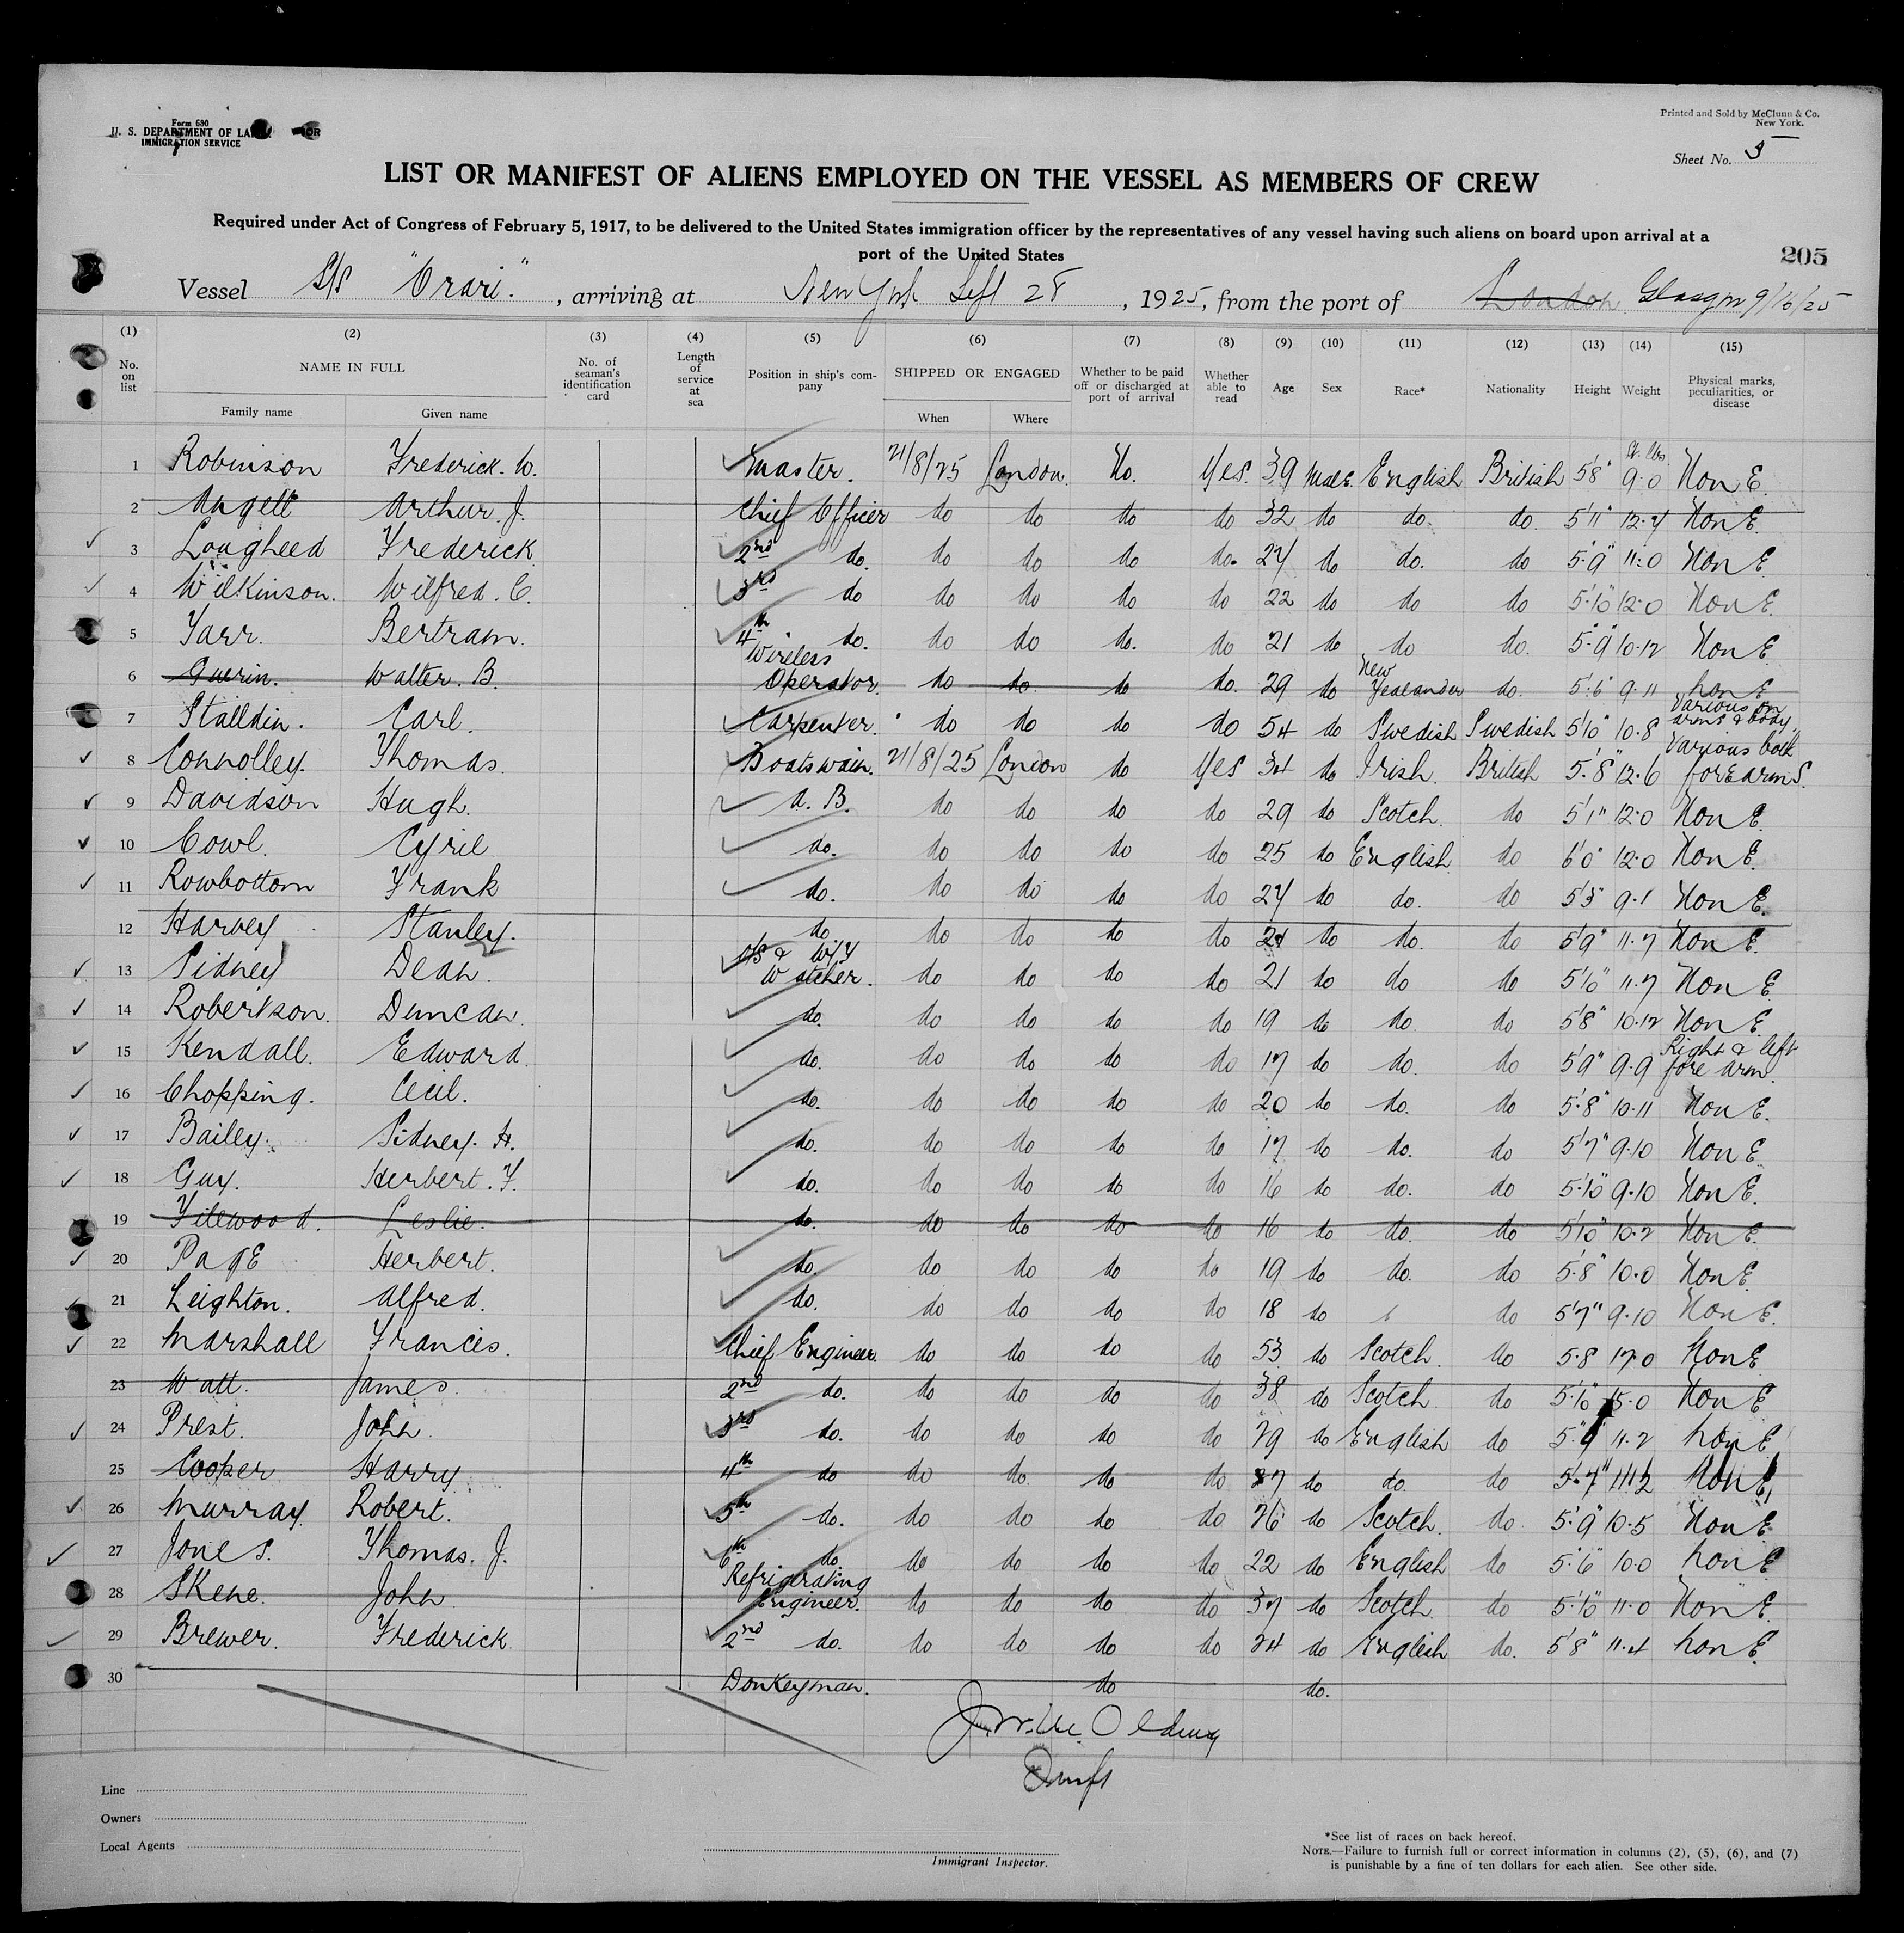 Form 680
U. S. DEPARTMENT OF LABOR
IMMIGRATION SERVICE
Printed and Sold by McClunn & Co.
New York.
Sheet No. 5
LIST OR MANIFEST OF ALIENS EMPLOYED ON THE VESSEL AS MEMBERS OF CREW
Required under Act of Congress of February 5, 1917, to be delivered to the United States immigration officer by the representatives of any vessel having such aliens on board upon arrival at a
port of the United States
205
Vessel S/S "Orari." , arriving at New York Sept 28 , 1925, from the port of London Glasgow 9/16/25
(1) (2) (3) (4) (5) (6) (7) (8) (9) (10) (11) (12) (13) (14) (15)
No. on list NAME IN FULL Family name Given name No. of seaman's identification card Length of service at sea Position in ship's company SHIPPED OR ENGAGED When Where Whether to be paid off or discharged at port of arrival Whether able to read Age Sex Race* Nationality Height Weight Physical marks, peculiarities, or disease
1 Robinson Frederick. W. Master. 21/8/25 London. No. Yes. 39 Male. English British 5'8" St. lbs 9.0 NonE.
2 Angell Arthur. J. Chief Officer do do do do 32 do do. do. 5'11" 12.7 NonE
3 Lougheed Frederick 2nd do. do do do do. 27 do do. do 5'.9" 11.0 NonE
4 Wilkinson. Wilfred. C. 3rd do do do do do 22 do do do 5'.10" 12.0 NonE.
5 Yarr. Bertram. 4th do. do do do. do 21 do do do. 5'.9" 10.12 NonE
6 Guerin. Walter. B. Wireless Operator. do do do do. 29 do New Zealander do. 5'.6" 9.11 nonE
7 Stalldin. Carl. Carpenter. do do do do 54 do Swedish Swedish 5'10" 10.8 Various on arms & body.
8 Connolley. Thomas. Boatswain. 21/8/25 London do Yes 34 do Irish. British 5'.8" 12.6 Various both forEarmS.
9 Davidson Hugh. A. B. do do do do 29 do Scotch. do 5'1" 12.0 NonE.
10 Cowl. Cyril do. do do do do 25 do English. do 6'0" 12.0 NonE.
11 Rowbottom Frank do. do do do do 27 do do. do 5'3" 9.1 NonE.
12 Harvey Stanley. do do do do do 24 do do. do 5'9" 11.7 NonE.
13 Sidney Dean. O/S & W/T Watcher. do do do do 21 do do do 5'10" 11.7 NonE
14 Robertson. Duncan. do. do do do do 19 do do. do 5'8" 10.12 NonE.
15 Kendall. Edward. do. do do do do 17 do do. do 5'9" 9.9 Right & left fore arm.
16 Chopping. Cecil. do. do do do do 20 do do. do 5'.8" 10.11 NonE.
17 Bailey. Sidney. H. do. do do do do 17 do do. do 5'7" 9.10 NonE
18 Guy. Herbert. F. do. do do do do 16 do do. do 5'.10" 9.10 NonE.
19 Filewood. Leslie. do. do do do do 16 do do. do 5'10" 10.2 NonE.
20 PagE Herbert. do. do do do do 19 do do. do 5'.8" 10.0 NonE
21 Leighton. Alfred. do. do do do do 18 do do 5'7" 9.10 NonE.
22 Marshall Francis. Chief Engineer. do do do do 53 do Scotch. do 5.8 17.0 NonE
23 Watt. James. 2nd do. do do do do 38 do Scotch. do 5'.10" 15.0 NonE
24 Prest. John. 3rd do. do do do do 29 do English do 5'.9" 11.2 nonE
25 Cooper Harry. 4th do do do do do 37 do do. do 5'.7" 11.12 NonE
26 Murray Robert. 5th do. do do do do 26 do Scotch. do 5'.9" 10.5 NonE
27 JoneS. Thomas. J. 6th do do do do do 22 do English do 5'.6" 10.0 nonE
28 Skene. John Refrigerating Engineer. do do do do 37 do Scotch do 5'.10" 11.0 NonE.
29 Brewer. Frederick. 2nd do. do do do do 24 do English do. 5'8" 11.4 nonE.
30 Donkeyman. do do.
Line
Owners
Local Agents
Immigrant Inspector.
*See list of races on back hereof.
NOTE.—Failure to furnish full or correct information in columns (2), (5), (6), and (7)
is punishable by a fine of ten dollars for each alien. See other side.